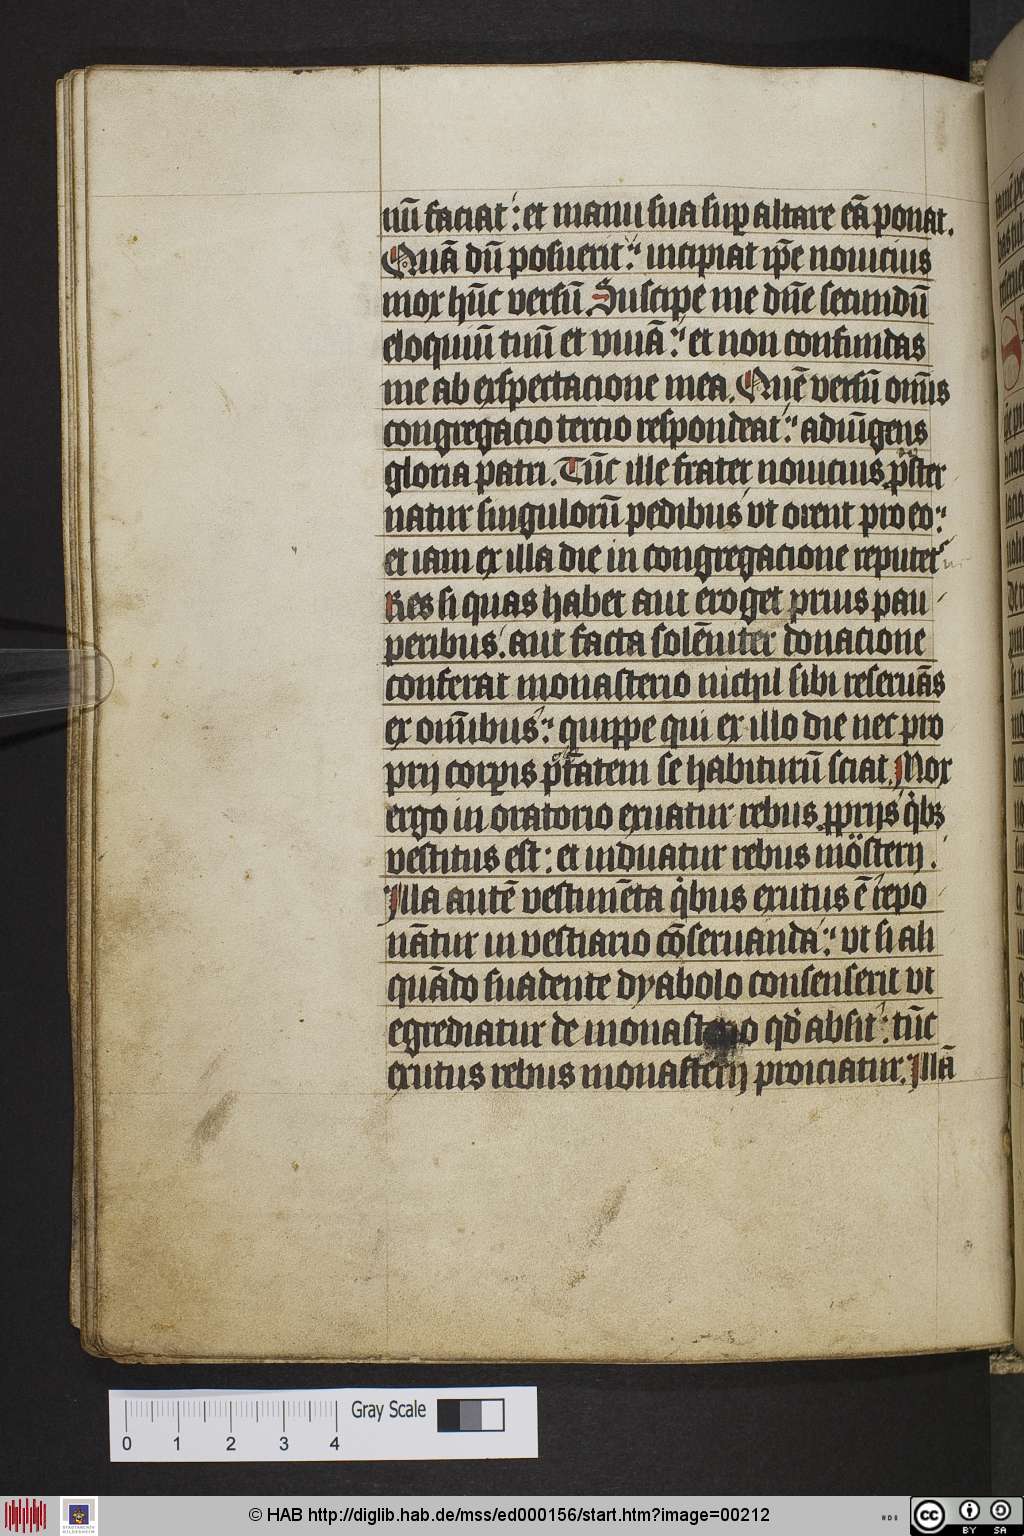 nū faciat: et manu sua suꝑ altare eā ponat.
Quā dū posuerit: incipiat ip̄e nouicius
mox hūc versū. Suscipe me dn̄e secundū
eloquiū tuū et viuā: et non confundas
me ab exspectacione mea. Quē versū om̄is
congregacio tercio respondeat: adiūgens
gloria patri. Tūc ille frater nouicius ꝓster
natur singulorū pedibus vt orent pro eo:
et iam ex illa die in congregacione reputet᷑
Res si quas habet aut eroget prius pau
peribus. aut facta solēniter donacione
conferat monasterio nichil sibi reseruās
ex om̄ibus: quippe qui ex illo die nec pro
prij corꝑis ptātem se habiturū sciat. Mox
ergo in oratorio exuatur rebus ꝓprijs qͥbꝫ
vestitus est: et induatur rebus mōsterij.
Illa autē vestimēta qͥbus exutus ē repo
nātur in vestiario cōseruanda: vt si ali
quādo suadente dyabolo consenserit vt
egrediatur de monasterio qd̓ absit: tūc
exutus rebus monasterij proiciatur. Illā
0 1 2 3 4
Gray Scale
© HAB http://diglib.hab.de/mss/ed000156/start.htm?image=00212
cc BY SA